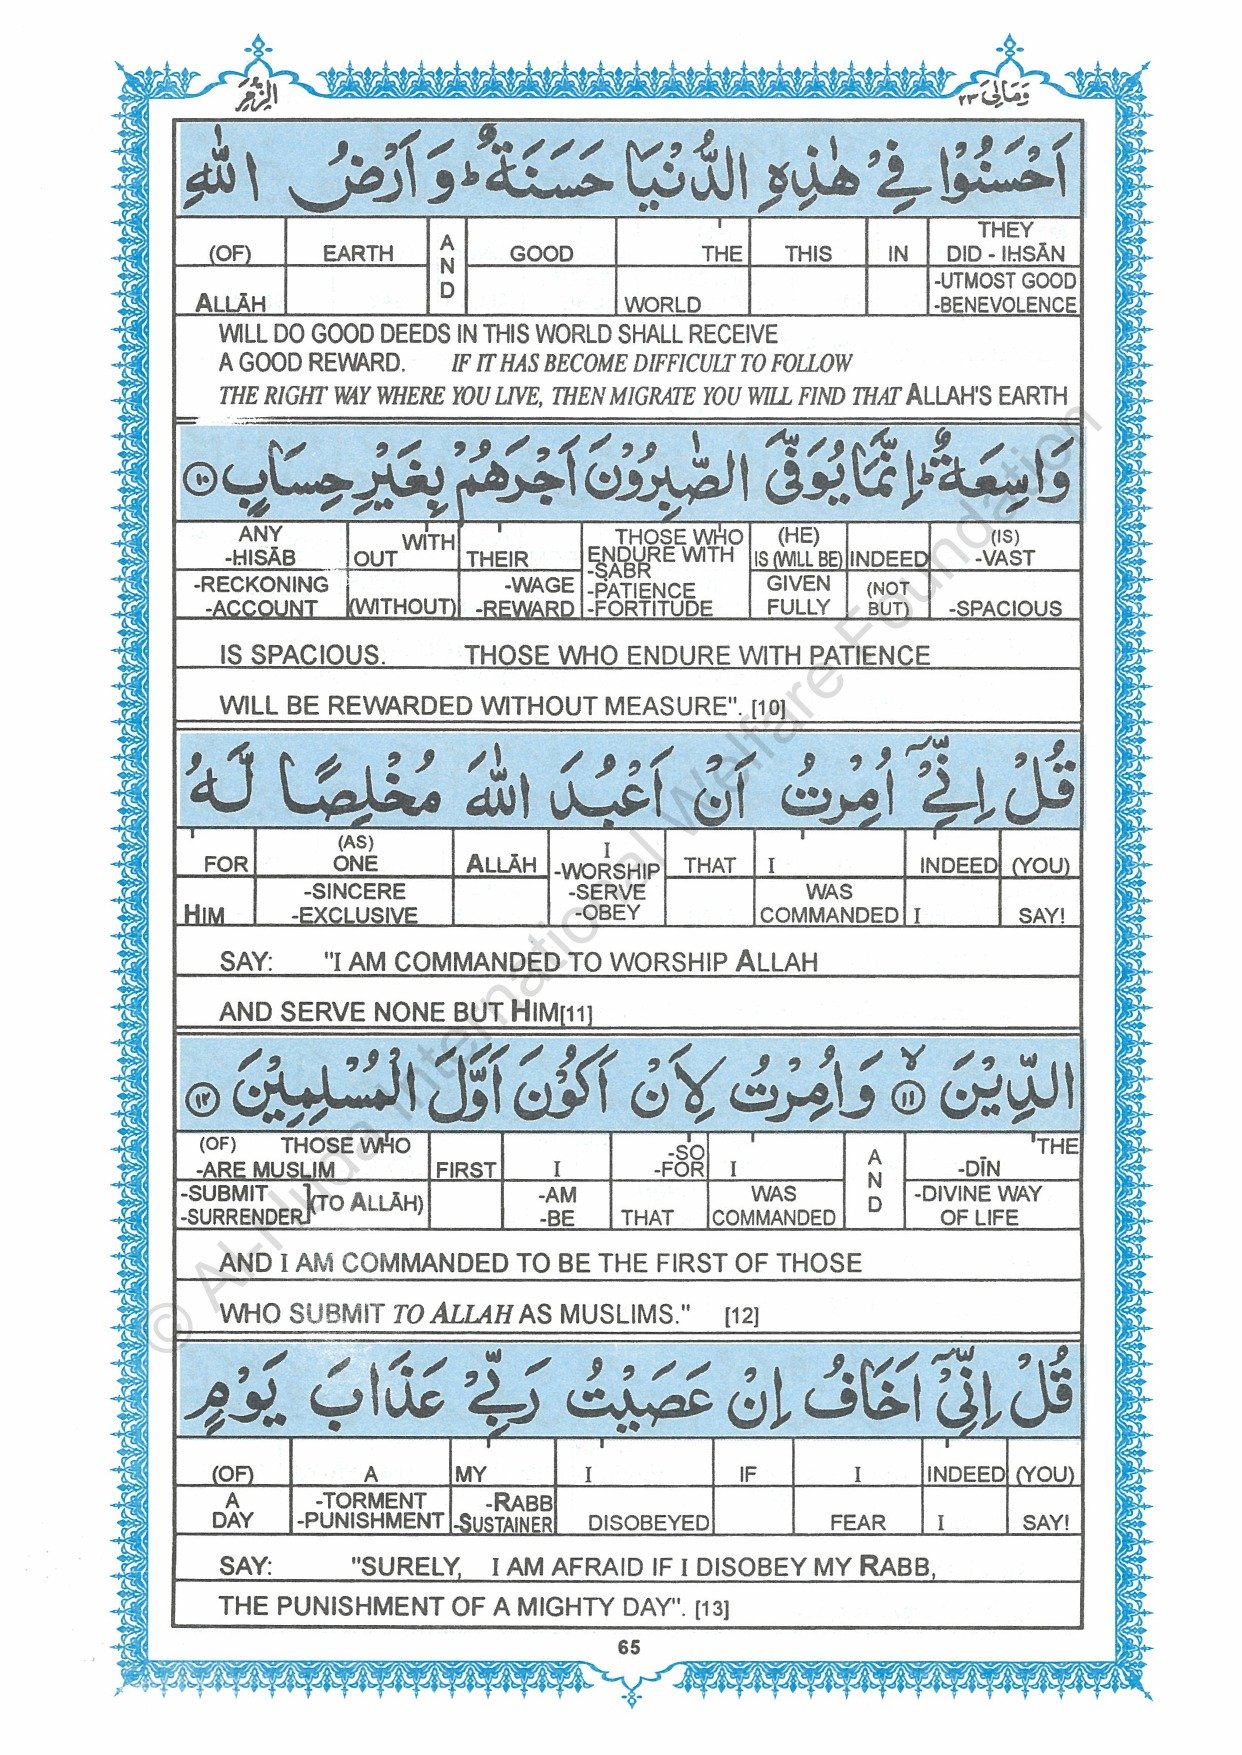 الزمر
ومالی ٢٣
اَحْسَنُوْا فِيْ هٰذِهِ الدُّنْيَا حَسَنَةٌ ؕ وَ اَرْضُ اللّٰهِ
(OF) EARTH AND GOOD THE THIS IN THEY DID - IḤSĀN
ALLĀH WORLD -UTMOST GOOD -BENEVOLENCE
WILL DO GOOD DEEDS IN THIS WORLD SHALL RECEIVE
A GOOD REWARD. IF IT HAS BECOME DIFFICULT TO FOLLOW
THE RIGHT WAY WHERE YOU LIVE, THEN MIGRATE YOU WILL FIND THAT ALLAH'S EARTH
وَاسِعَةٌ ؕ اِنَّمَا يُوَفَّى الصّٰبِرُوْنَ اَجْرَهُمْ بِغَيْرِ حِسَابٍ ١٠
ANY -HISĀB WITH OUT THEIR THOSE WHO ENDURE WITH -SABR (HE) IS (WILL BE) INDEED (IS) -VAST
-RECKONING -ACCOUNT (WITHOUT) -WAGE -REWARD -PATIENCE -FORTITUDE GIVEN FULLY (NOT BUT) -SPACIOUS
IS SPACIOUS. THOSE WHO ENDURE WITH PATIENCE
WILL BE REWARDED WITHOUT MEASURE". [10]
قُلْ اِنِّيْٓ اُمِرْتُ اَنْ اَعْبُدَ اللّٰهَ مُخْلِصًا لَّهُ
FOR (AS) ONE ALLĀH I -WORSHIP THAT I INDEED (YOU)
HIM -SINCERE -EXCLUSIVE -SERVE -OBEY WAS COMMANDED I SAY!
SAY: "I AM COMMANDED TO WORSHIP ALLAH
AND SERVE NONE BUT HIM[11]
الدِّيْنَ ۙ ١١ وَ اُمِرْتُ لِاَنْ اَكُوْنَ اَوَّلَ الْمُسْلِمِيْنَ ١٢
(OF) THOSE WHO -ARE MUSLIM FIRST I -SO -FOR I AND THE -DĪN
-SUBMIT -SURRENDER] (TO ALLĀH) -AM -BE THAT WAS COMMANDED -DIVINE WAY OF LIFE
AND I AM COMMANDED TO BE THE FIRST OF THOSE
WHO SUBMIT TO ALLAH AS MUSLIMS." [12]
قُلْ اِنِّيْٓ اَخَافُ اِنْ عَصَيْتُ رَبِّيْ عَذَابَ يَوْمٍ
(OF) A MY I IF I INDEED (YOU)
A DAY -TORMENT -PUNISHMENT -RABB -SUSTAINER DISOBEYED FEAR I SAY!
SAY: "SURELY, I AM AFRAID IF I DISOBEY MY RABB,
THE PUNISHMENT OF A MIGHTY DAY". [13]
65
© Al-Huda International Welfare Foundation